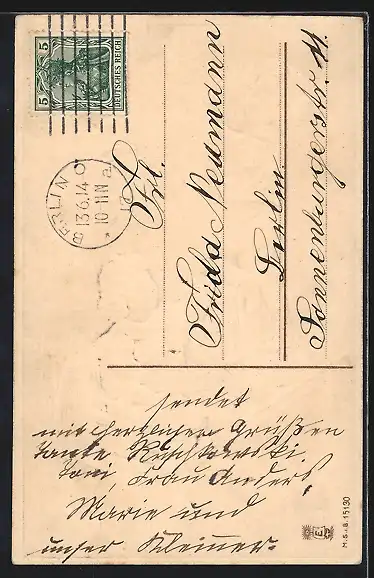 5 DEUTSCHES REICH 5
BERLIN O
13.6.14
10-11 N
Frl.
Frida Neumann
Berlin
Sonnenburgerstr 11.
sendet
mit herzlichen Grüßen
tante Ryschkowski,
toni, Frau Anders,
Marie und
unser Kleiner.
M.S.i.B. 15130